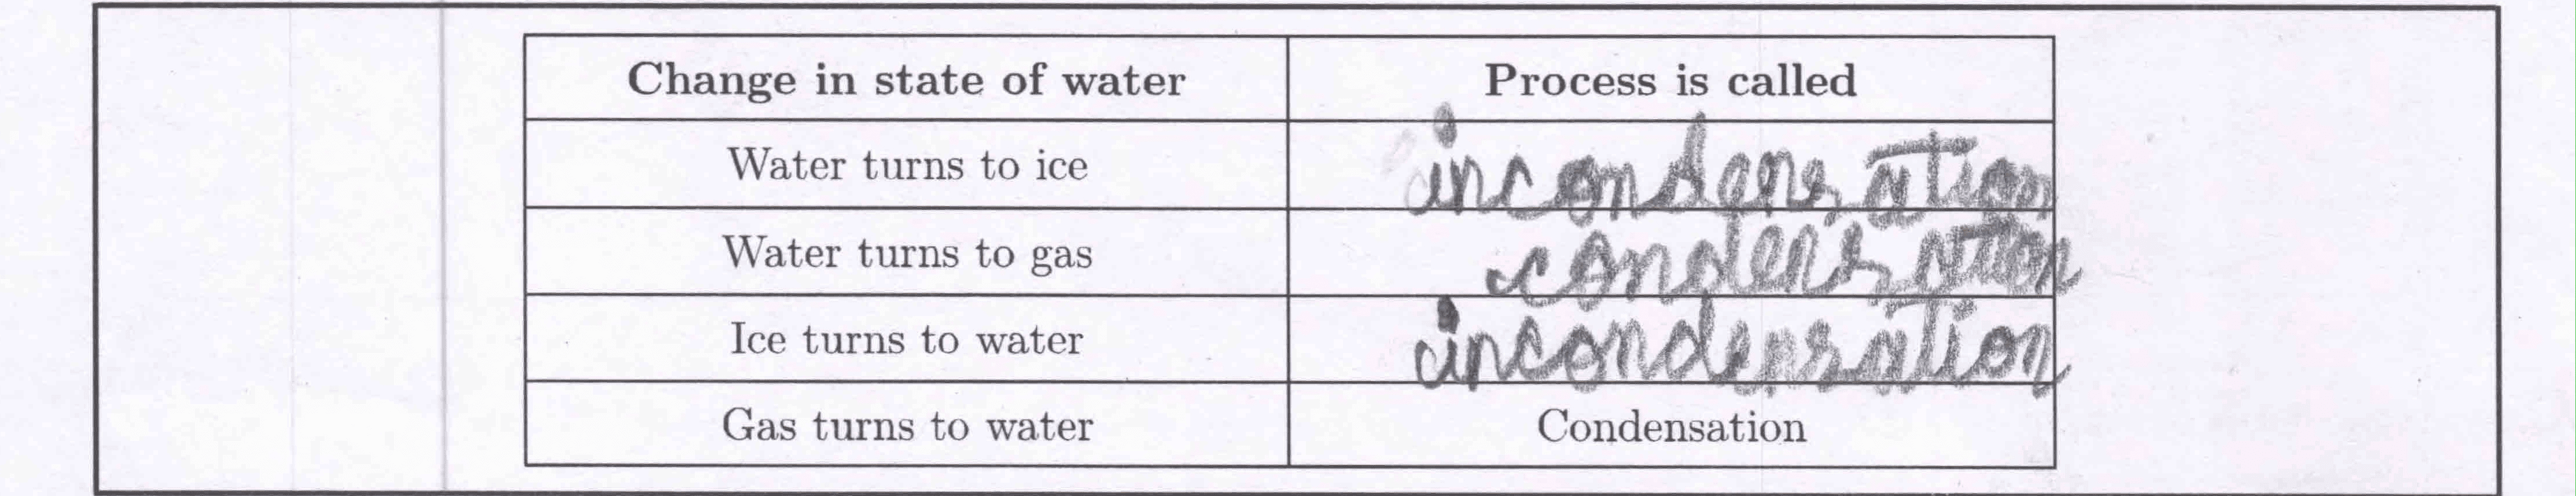 Change in state of water Process is called
Water turns to ice incondensation
Water turns to gas condensation
Ice turns to water incondensation
Gas turns to water Condensation